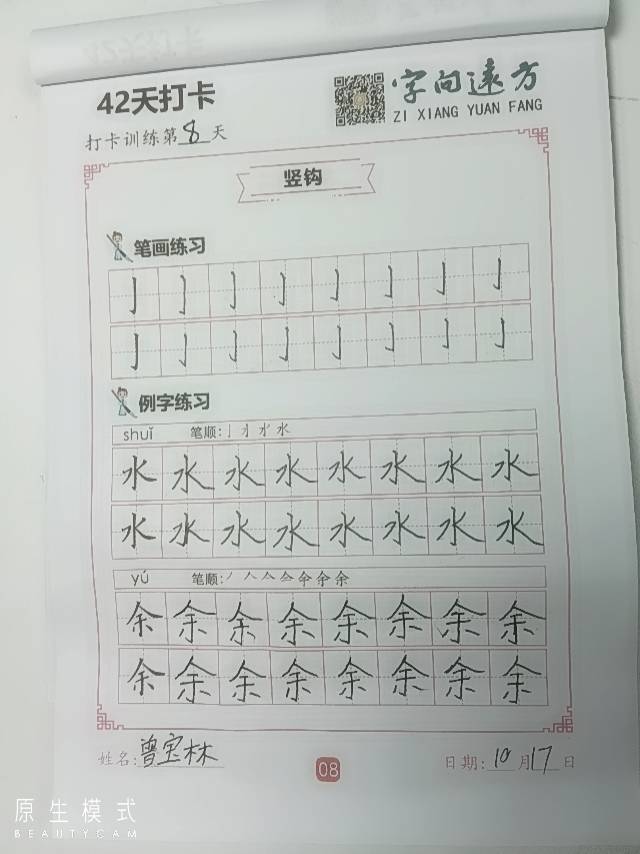 42天打卡
字向远方
ZI XIANG YUAN FANG
打卡训练第8天
竖钩
笔画练习
亅亅亅亅亅亅亅亅
亅亅亅亅亅亅亅亅
例字练习
shuǐ 笔顺:
水水水水水水水水
水水水水水水水水
yú 笔顺:
余余余余余余余余
余余余余余余余余
姓名:曾宝林
08
日期:10月17日
原生模式
BEAUTYCAM